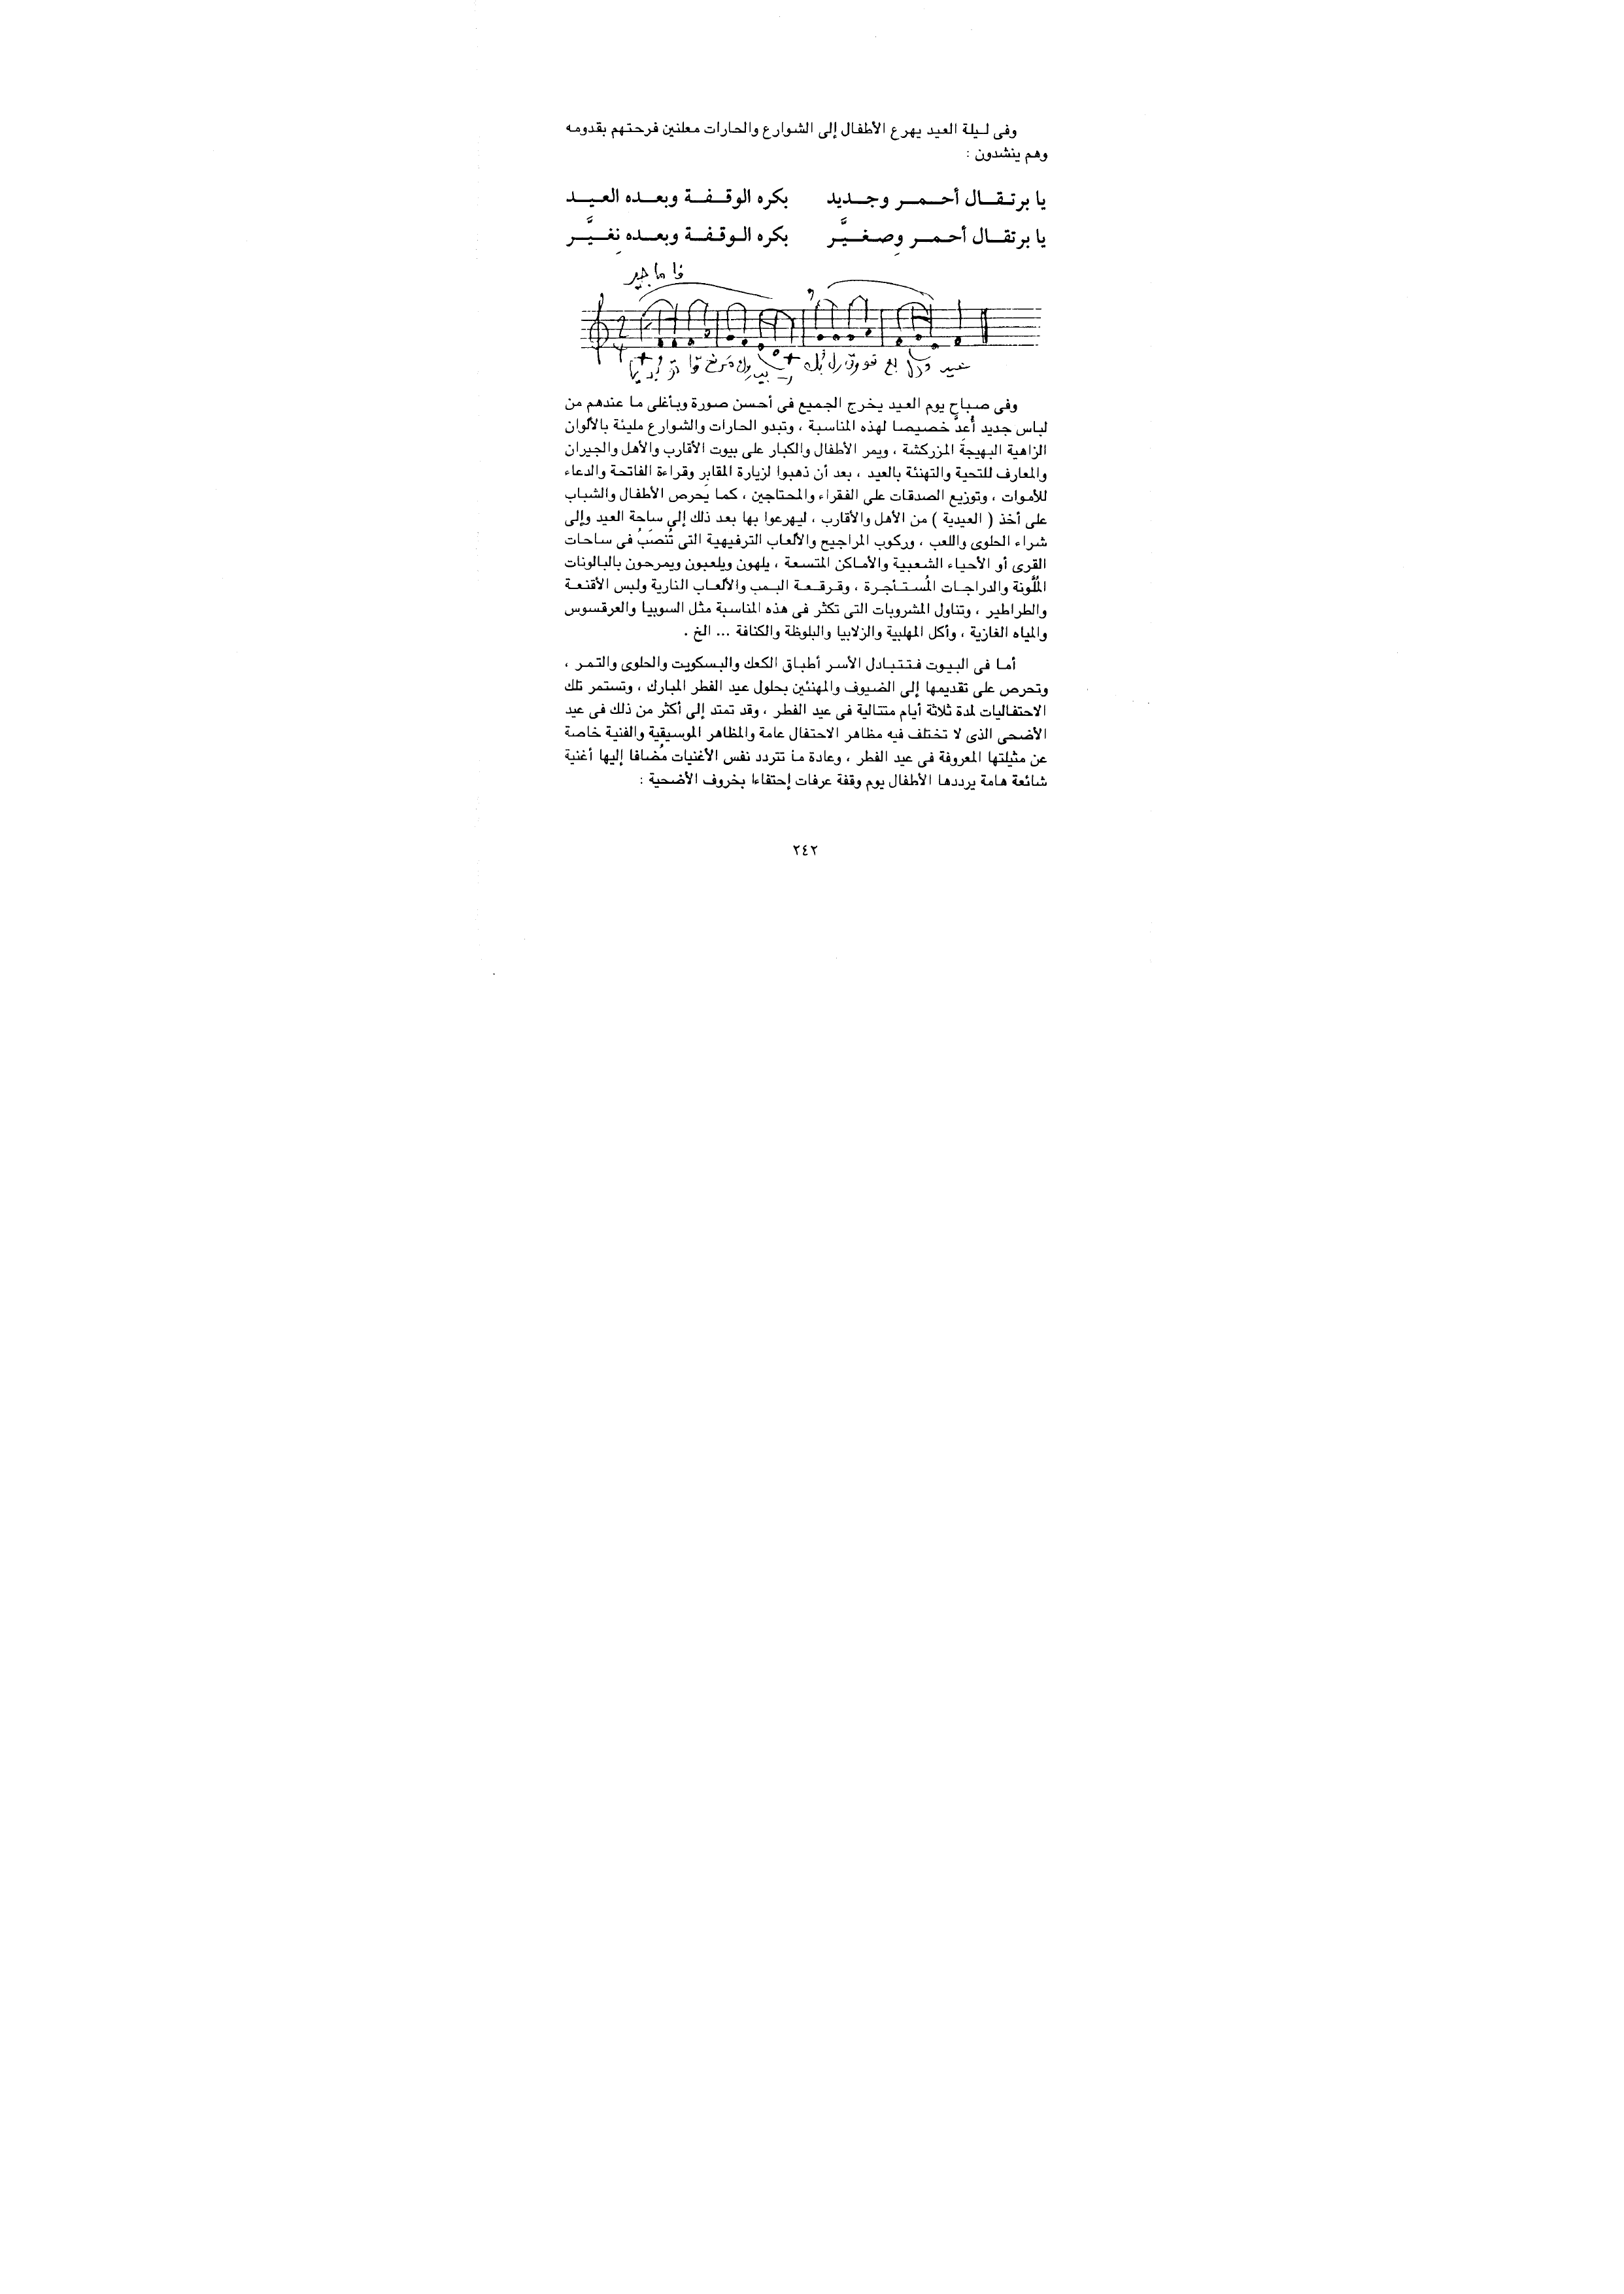 وفى ليلة العيد يهرع الأطفال إلى الشوارع والحارات معلنين فرحتهم بقدومه
وهم ينشدون :
يا برتقال أحمر وجديد بكره الوقفة وبعده العيد
يا برتقال أحمر وصِغيَّر بكره الوقفة وبعده نِغيَّر
فا ماجير
وفى صباح يوم العيد يخرج الجميع فى أحسن صورة وبأغلى ما عندهم من
لباس جديد أُعدَّ خصيصا لهذه المناسبة ، وتبدو الحارات والشوارع مليئة بالألوان
الزاهية البهيجة المزركشة ، ويمر الأطفال والكبار على بيوت الأقارب والأهل والجيران
والمعارف للتحية والتهنئة بالعيد ، بعد أن ذهبوا لزيارة المقابر وقراءة الفاتحة والدعاء
للأموات ، وتوزيع الصدقات على الفقراء والمحتاجين ، كما يَحرص الأطفال والشباب
على أخذ ( العيدية ) من الأهل والأقارب ، ليهرعوا بها بعد ذلك إلى ساحة العيد وإلى
شراء الحلوى واللعب ، وركوب المراجيح والألعاب الترفيهية التى تُنصَبُ فى ساحات
القرى أو الأحياء الشعبية والأماكن المتسعة ، يلهون ويلعبون ويمرحون بالبالونات
المُلَّونة والدراجات المُستأجرة ، وقرقعة البمب والألعاب النارية ولبس الأقنعة
والطراطير ، وتناول المشروبات التى تكثر فى هذه المناسبة مثل السوبيا والعرقسوس
والمياه الغازية ، وأكل المهلبية والزلابيا والبلوظة والكنافة ... الخ .
أما فى البيوت فتتبادل الأسر أطباق الكعك والبسكويت والحلوى والتمر ،
وتحرص على تقديمها إلى الضيوف والمهنئين بحلول عيد الفطر المبارك ، وتستمر تلك
الاحتفاليات لمدة ثلاثة أيام متتالية فى عيد الفطر ، وقد تمتد إلى أكثر من ذلك فى عيد
الأضحى الذى لا تختلف فيه مظاهر الاحتفال عامة والمظاهر الموسيقية والفنية خاصة
عن مثيلتها المعروفة فى عيد الفطر ، وعادة ما تتردد نفس الأغنيات مُضافا إليها أغنية
شائعة هامة يرددها الأطفال يوم وقفة عرفات إحتفاءا بخروف الأضحية :
٢٤٢